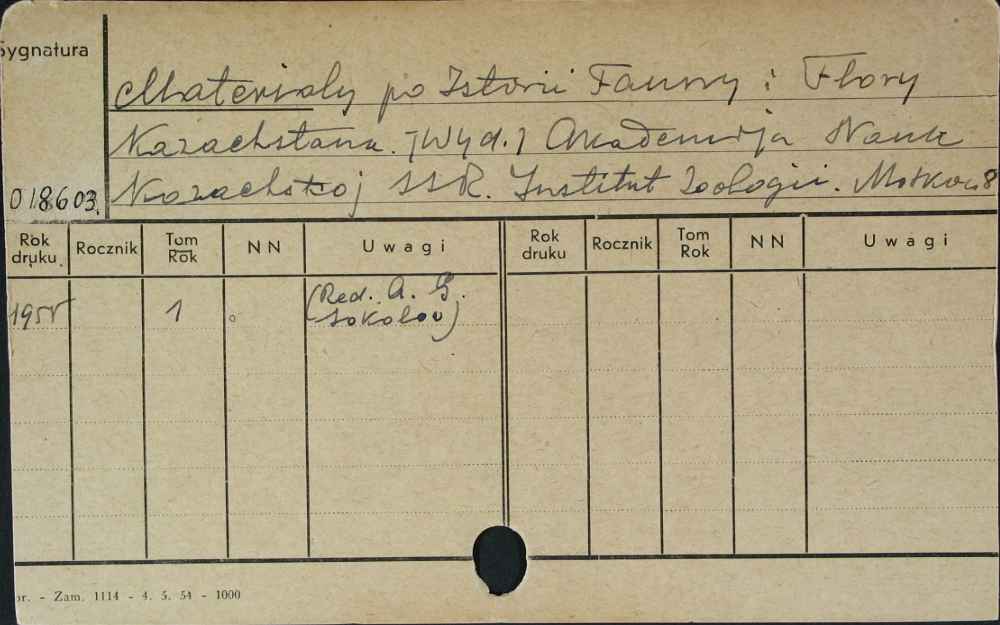 Sygnatura
Materialy po Istorii Fauny i Flory
Kazachstana. [Wyd.] Akademija Nauk
018603. Kazachskoj SSR. Institut Zoologii. Moskva 8
Rok druku Rocznik Tom Rok NN Uwagi Rok druku Rocznik Tom Rok NN Uwagi
1955 1 (Red. A. G.
Sokolov)
or. - Zam. 1114 - 4. 5. 54 - 1000